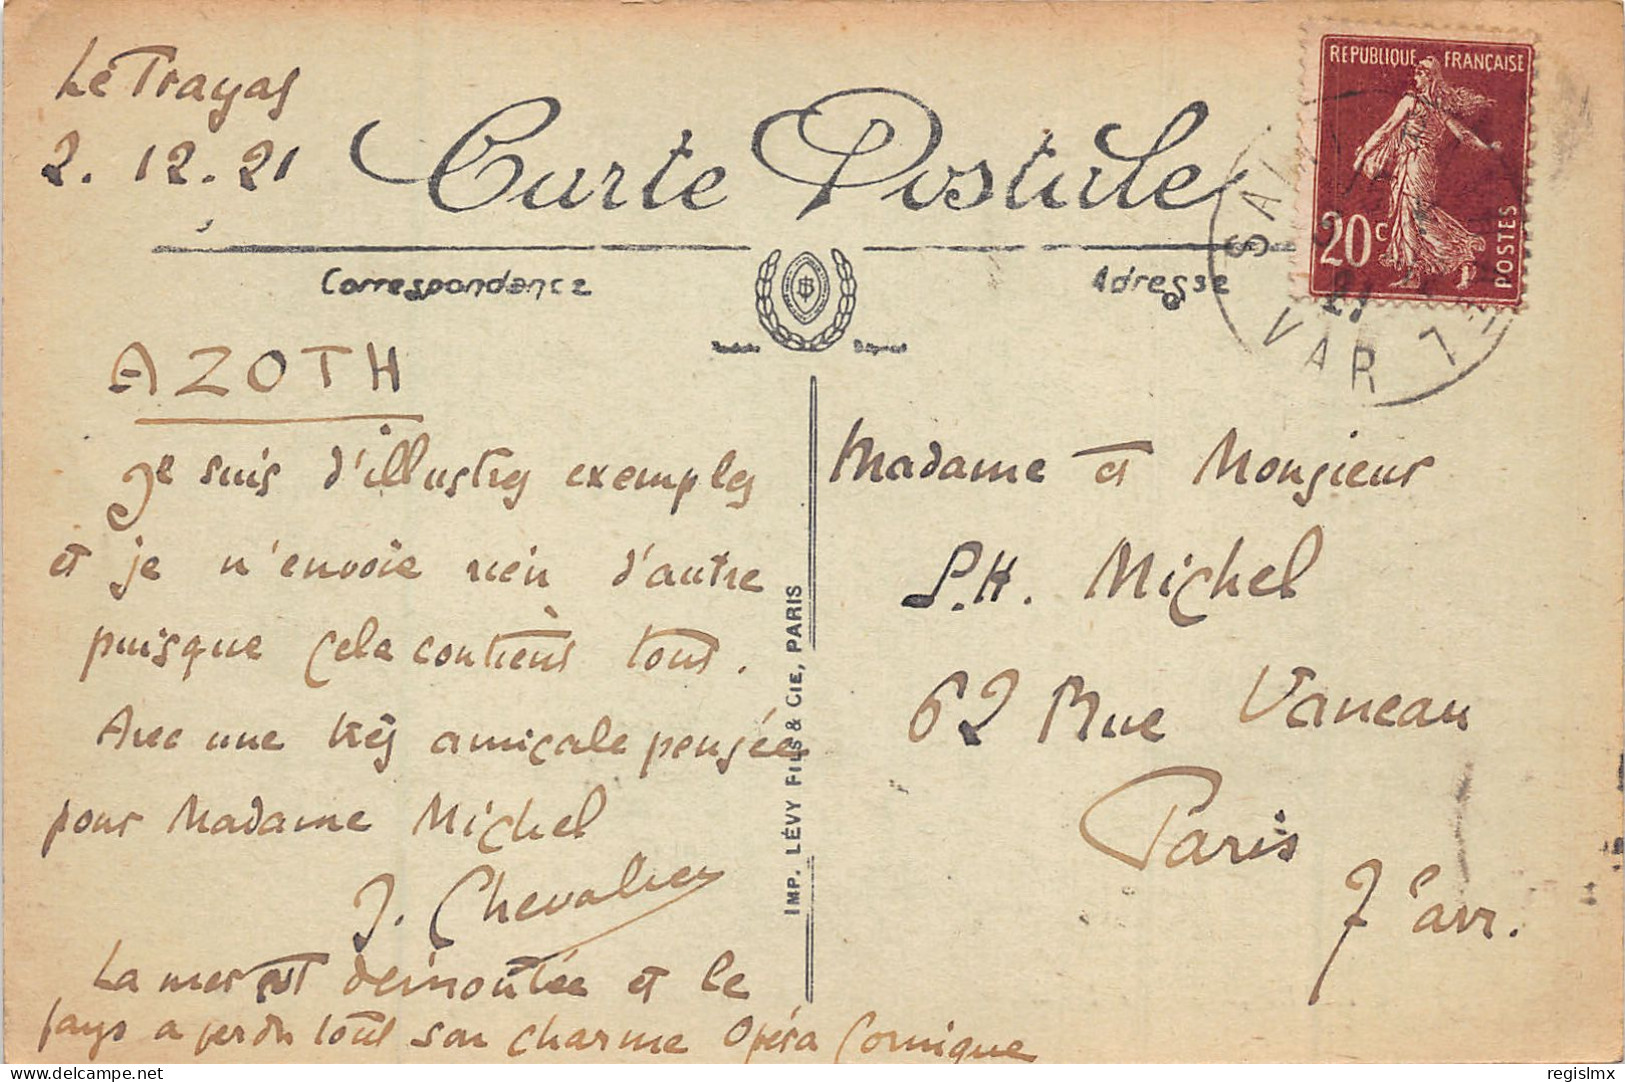 Le Trayas
2.12.21
Carte Postale
Correspondance
Adresse
REPUBLIQUE FRANÇAISE
20c
POSTES
VAR
21
AZOTH
Je suis d'illustres exemples
et je n'envoie rien d'autre
puisque cela contient tout.
Avec une très amicale pensée
pour Madame Michel
J. Chevalier
La mer est démontée et le
pays a perdu tout son charme Opéra Comique
IMP. LÉVY FILS & CIE, PARIS
Madame et Monsieur
P.H. Michel
62 Rue Vaneau
Paris
7e arr.
delcampe.net
regislmx